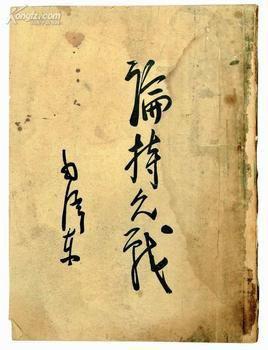 論持久戰
毛澤东
Kongfz.com